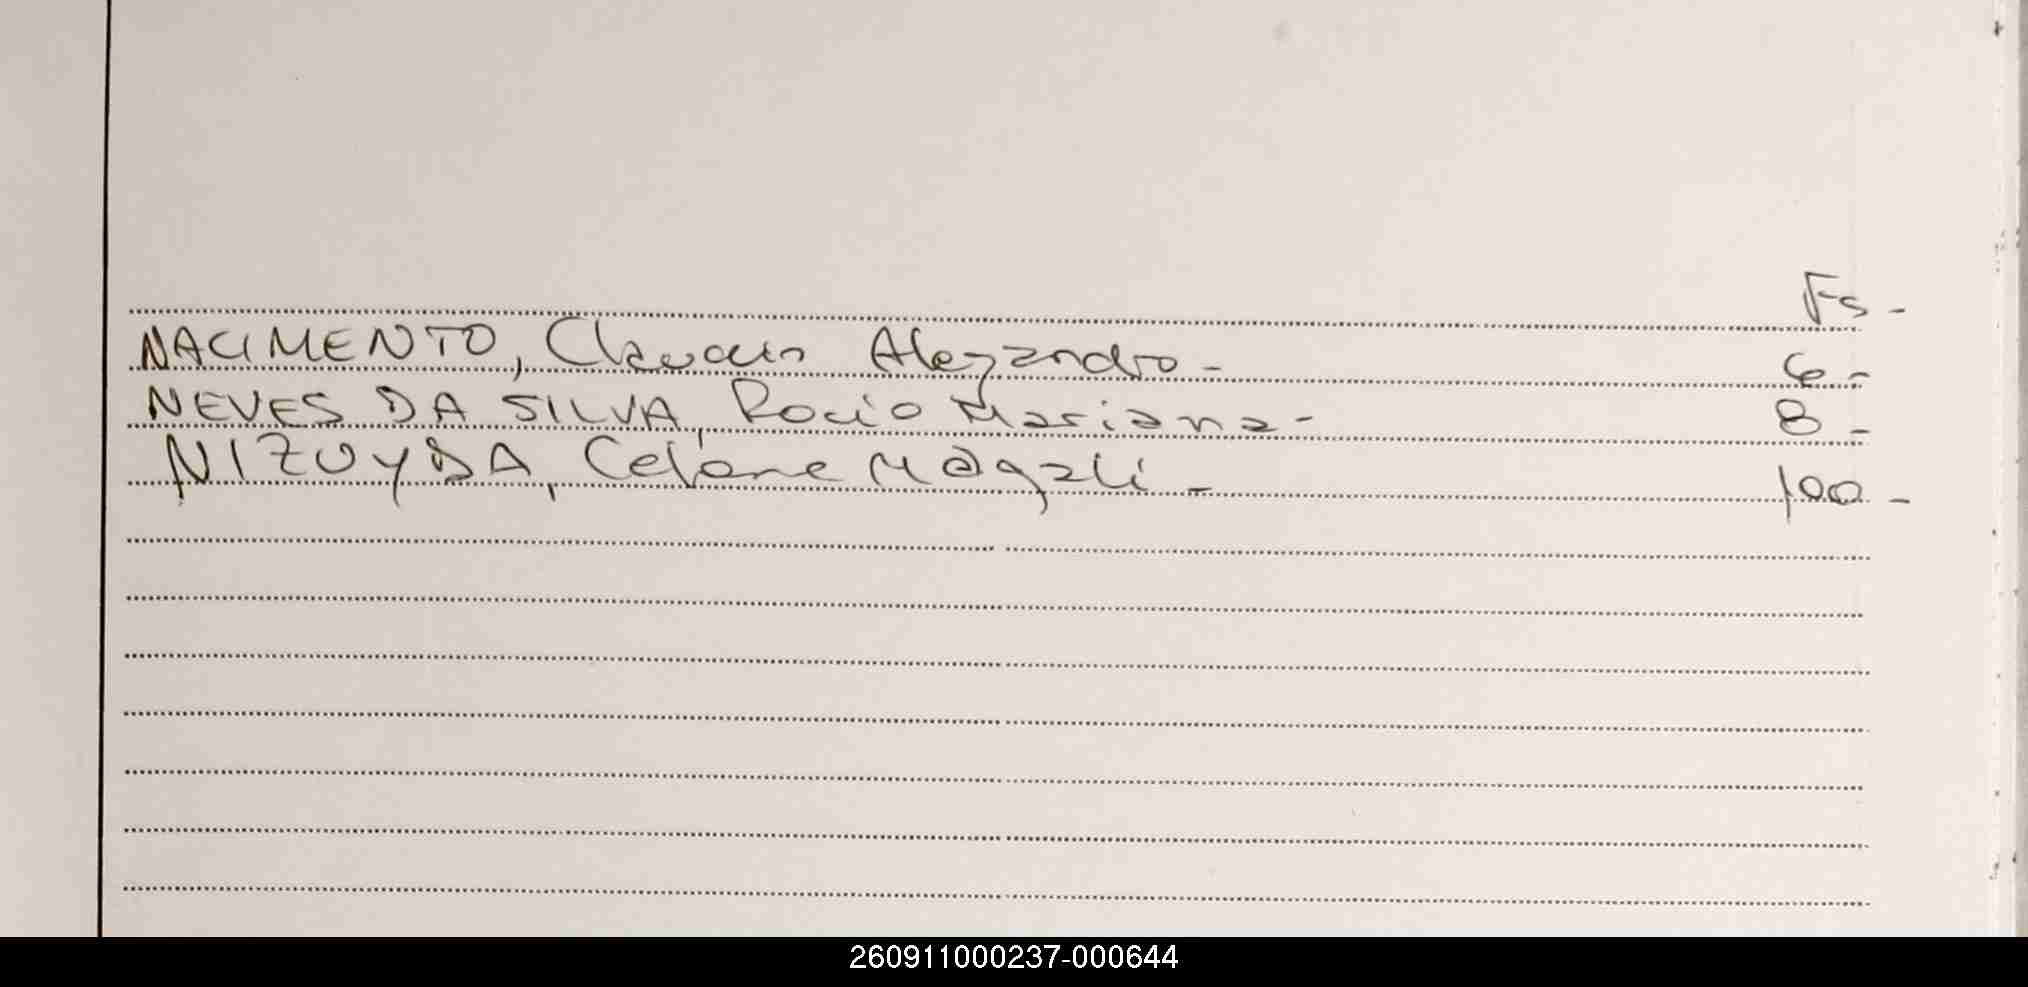 Fs -
NACIMENTO, Claudio Alejandro - 6 -
NEVES DA SILVA, Rocio Mariana - 8 -
NIZUYDA, Magali - 100 -
260911000237-000644